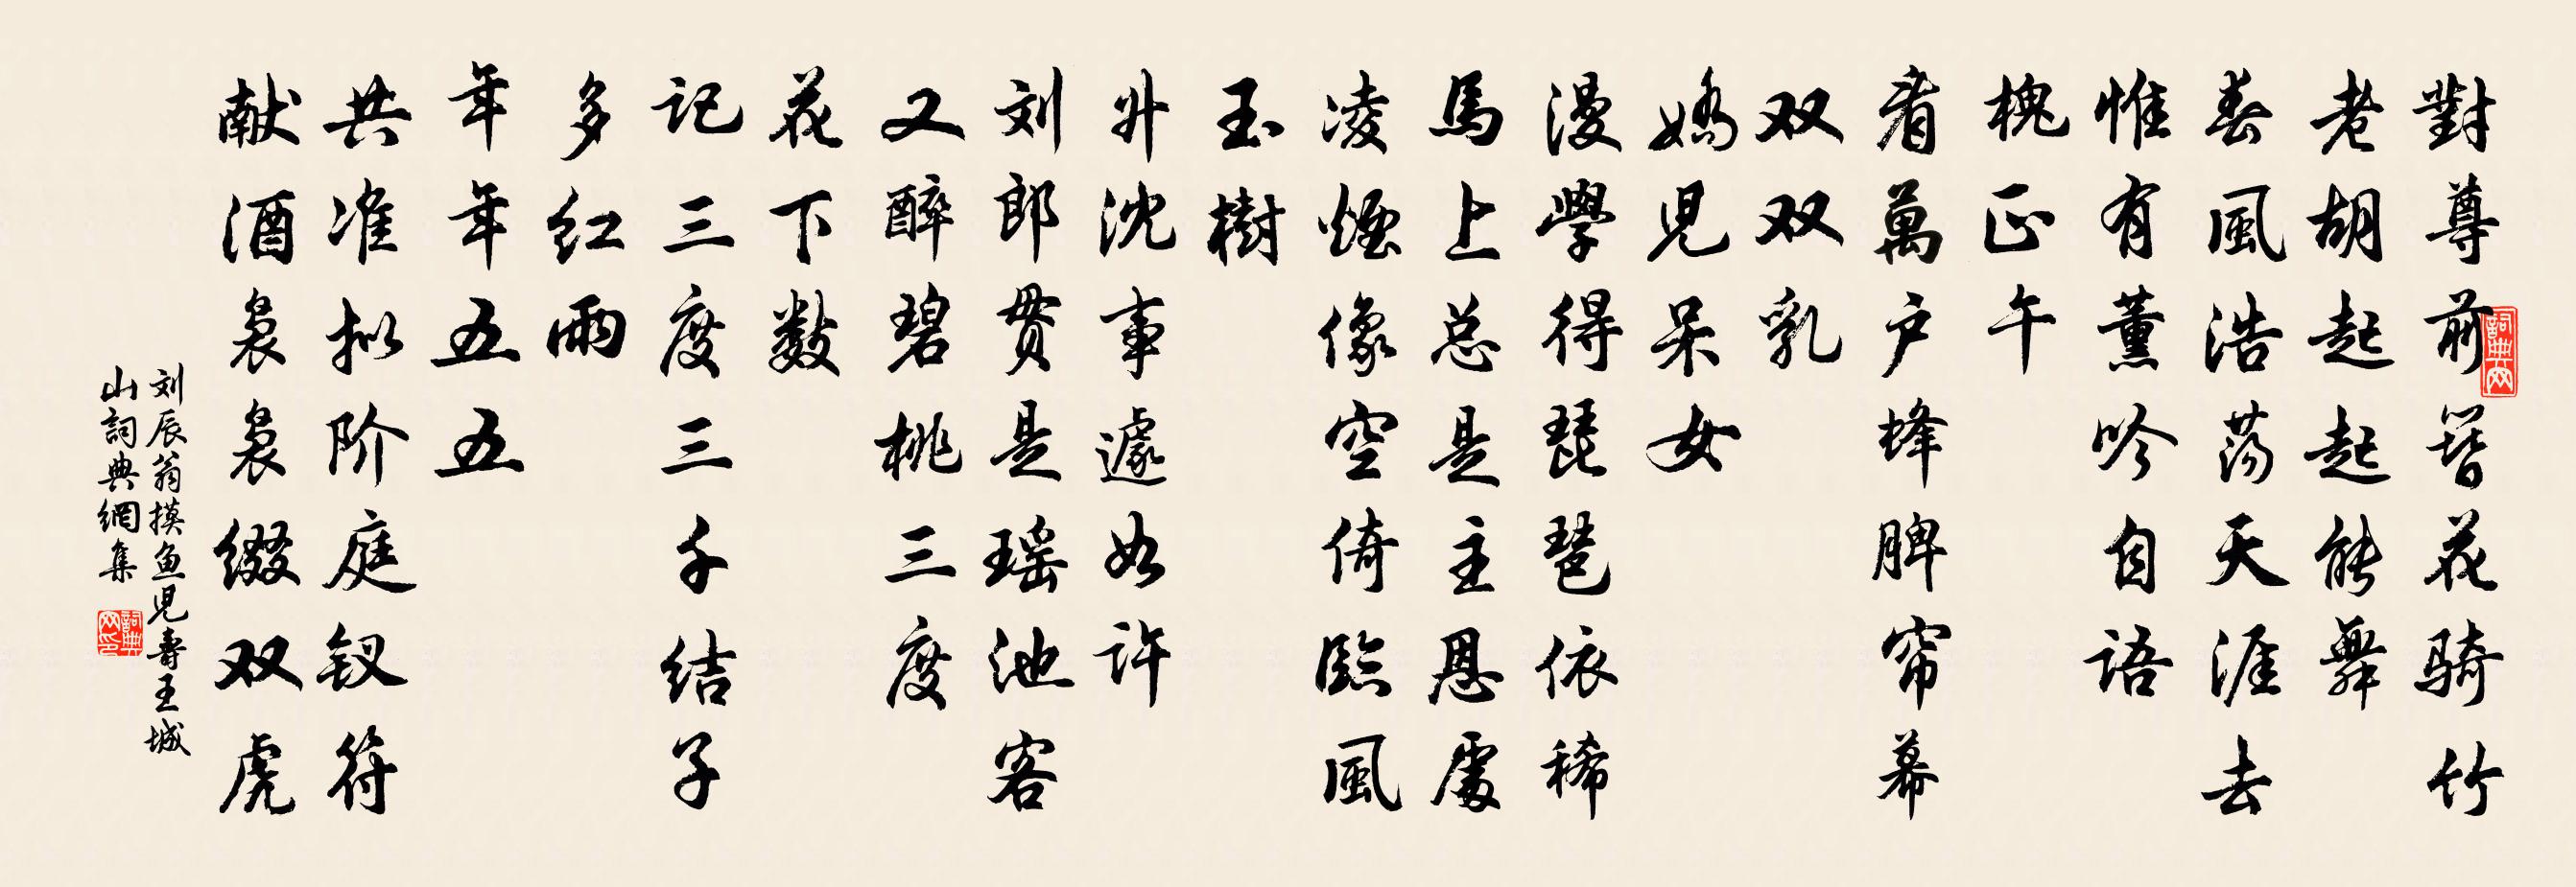 對尊前簪花騎竹
老胡起起能舞
春風浩荡天涯去
惟有薰吟自语
槐正午
看萬户蜂脾帘幕
双双乳
娇儿呆女
漫學得琵琶依稀
馬上总是主恩處
凌煙像空倚臨風
玉樹
升沈事遽如许
刘郎贯是瑶池客
又醉碧桃三度
花下数
记三度三千结子
多红雨
年年五五
共准拟阶庭钗符
献酒袅袅缀双虎
刘辰翁摸鱼儿寿王城
山詞典網集
詞典网
詞典网印